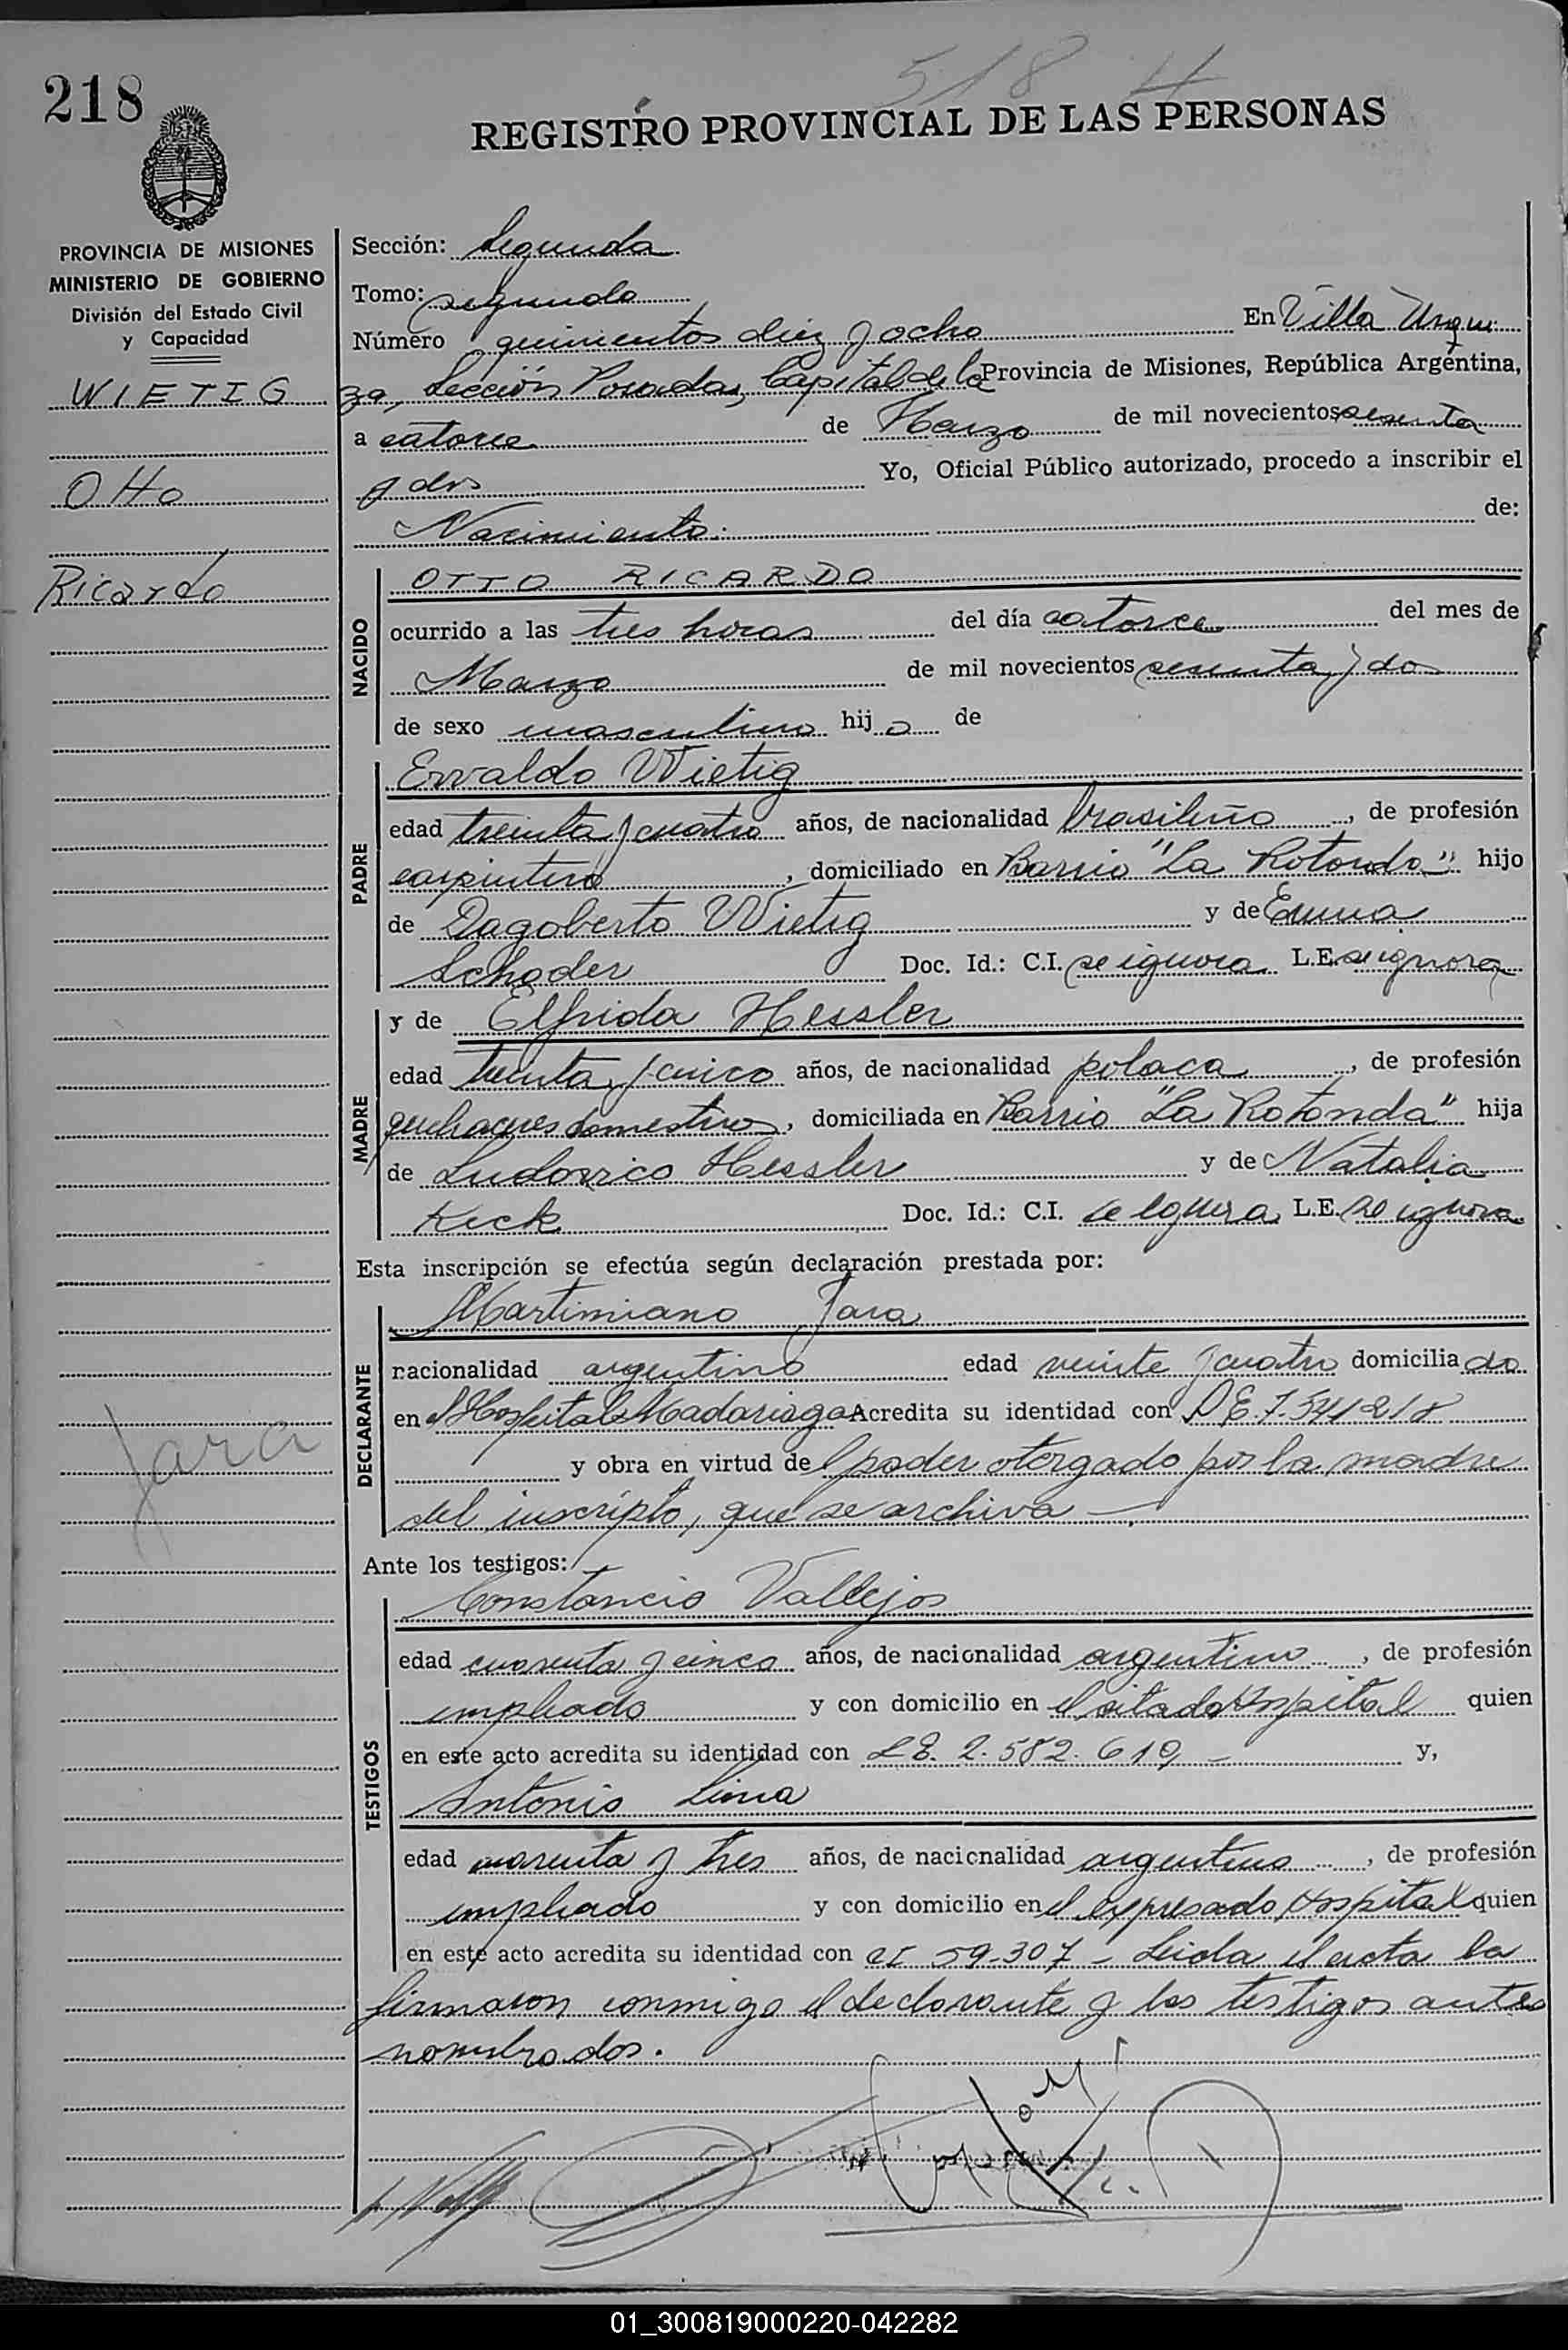 518 H
218
REGISTRO PROVINCIAL DE LAS PERSONAS
PROVINCIA DE MISIONES
MINISTERIO DE GOBIERNO
División del Estado Civil
y Capacidad
WIETIG
Otto
Ricardo
Jara
Sección: Segunda
Tomo: segundo
Número quinientos diez y ocho En Villa Urqui
za, Sección Posadas, Capital de la Provincia de Misiones, República Argentina,
a catorce de Marzo de mil novecientos sesenta
y dos Yo, Oficial Público autorizado, procedo a inscribir el
Nacimiento de:
NACIDO
OTTO RICARDO
ocurrido a las tres horas del día catorce del mes de
Marzo de mil novecientos sesenta y dos
de sexo masculino hijo de
PADRE
Ervaldo Wietig
edad treinta y cuatro años, de nacionalidad brasileño, de profesión
carpintero, domiciliado en Barrio "La Rotonda" hijo
de Dagoberto Wietig y de Emma
Schoder Doc. Id.: C.I. se ignora L.E. se ignora
MADRE
y de Elfrida Hessler
edad treinta y cinco años, de nacionalidad polaca, de profesión
quehaceres domestico, domiciliada en Barrio "La Rotonda" hija
de Ludovico Hessler y de Natalia
Keck Doc. Id.: C.I. se ignora L.E. se ignora
Esta inscripción se efectúa según declaración prestada por:
DECLARANTE
Martimiano Jara
nacionalidad argentino edad veinte y cuatro domiciliado
en el Hospital Madariaga Acredita su identidad con 7.541218
y obra en virtud del poder otorgado por la madre
del inscripto, que se archiva —
Ante los testigos:
TESTIGOS
Constancio Vallejos
edad cuarenta y cinco años, de nacionalidad argentino, de profesión
empleado y con domicilio en el citado Hospital quien
en este acto acredita su identidad con L.E. 2.582.619 — y,
Antonio Lima
edad cuarenta y tres años, de nacionalidad argentino, de profesión
empleado y con domicilio en el expresado Hospital quien
en este acto acredita su identidad con CI 59.307 — Leida el acta la
firmaron conmigo el declarante y los testigos antes
nombrados.
01_300819000220-042282